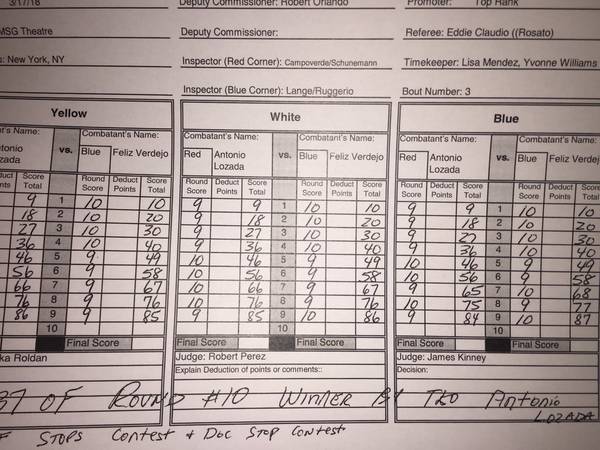 3/17/18 Deputy Commissioner: Robert Orlando Promoter: Top Rank
MSG Theatre Deputy Commissioner: Referee: Eddie Claudio ((Rosato)
s: New York, NY Inspector (Red Corner): Campoverde/Schunemann Timekeeper: Lisa Mendez, Yvonne Williams
Inspector (Blue Corner): Lange/Ruggerio Bout Number: 3
Yellow White Blue
ant's Name: vs. Combatant's Name: Combatant's Name: vs. Combatant's Name: Combatant's Name: vs. Combatant's Name:
ntonio Blue Feliz Verdejo Red Antonio Blue Feliz Verdejo Red Antonio Blue Feliz Verdejo
zada Lozada Lozada
duct Score Round Deduct Score Round Deduct Score Round Deduct Score Round Deduct Score Round Deduct Score
nts Total Score Points Total Score Points Total Score Points Total Score Points Total Score Points Total
9 1 10 10 9 9 1 10 10 9 9 1 10 10
18 2 10 20 9 18 2 10 20 9 18 2 10 20
27 3 10 30 9 27 3 10 30 9 27 3 10 30
36 4 10 40 9 36 4 10 40 9 36 4 10 40
46 5 9 49 10 46 5 9 49 10 46 5 9 49
56 6 9 58 10 56 6 9 58 10 56 6 9 58
66 7 9 67 10 66 7 9 67 9 65 7 10 68
76 8 9 76 10 76 8 9 76 10 75 8 9 77
86 9 9 85 9 85 9 10 86 9 84 9 10 87
10 10 10
Final Score Final Score Final Score Final Score Final Score
ka Roldan Judge: Robert Perez Judge: James Kinney
Explain Deduction of points or comments:: Decision:
37 OF ROUND #10 WINNER BY TKO ANTONIO
LOZADA
F STOPS CONTEST + DOC STOP CONTEST